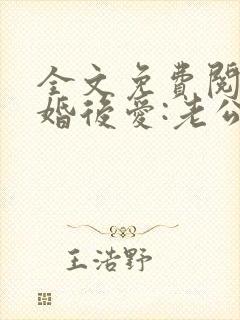 全文免費閱
婚後愛:老公
王浩野